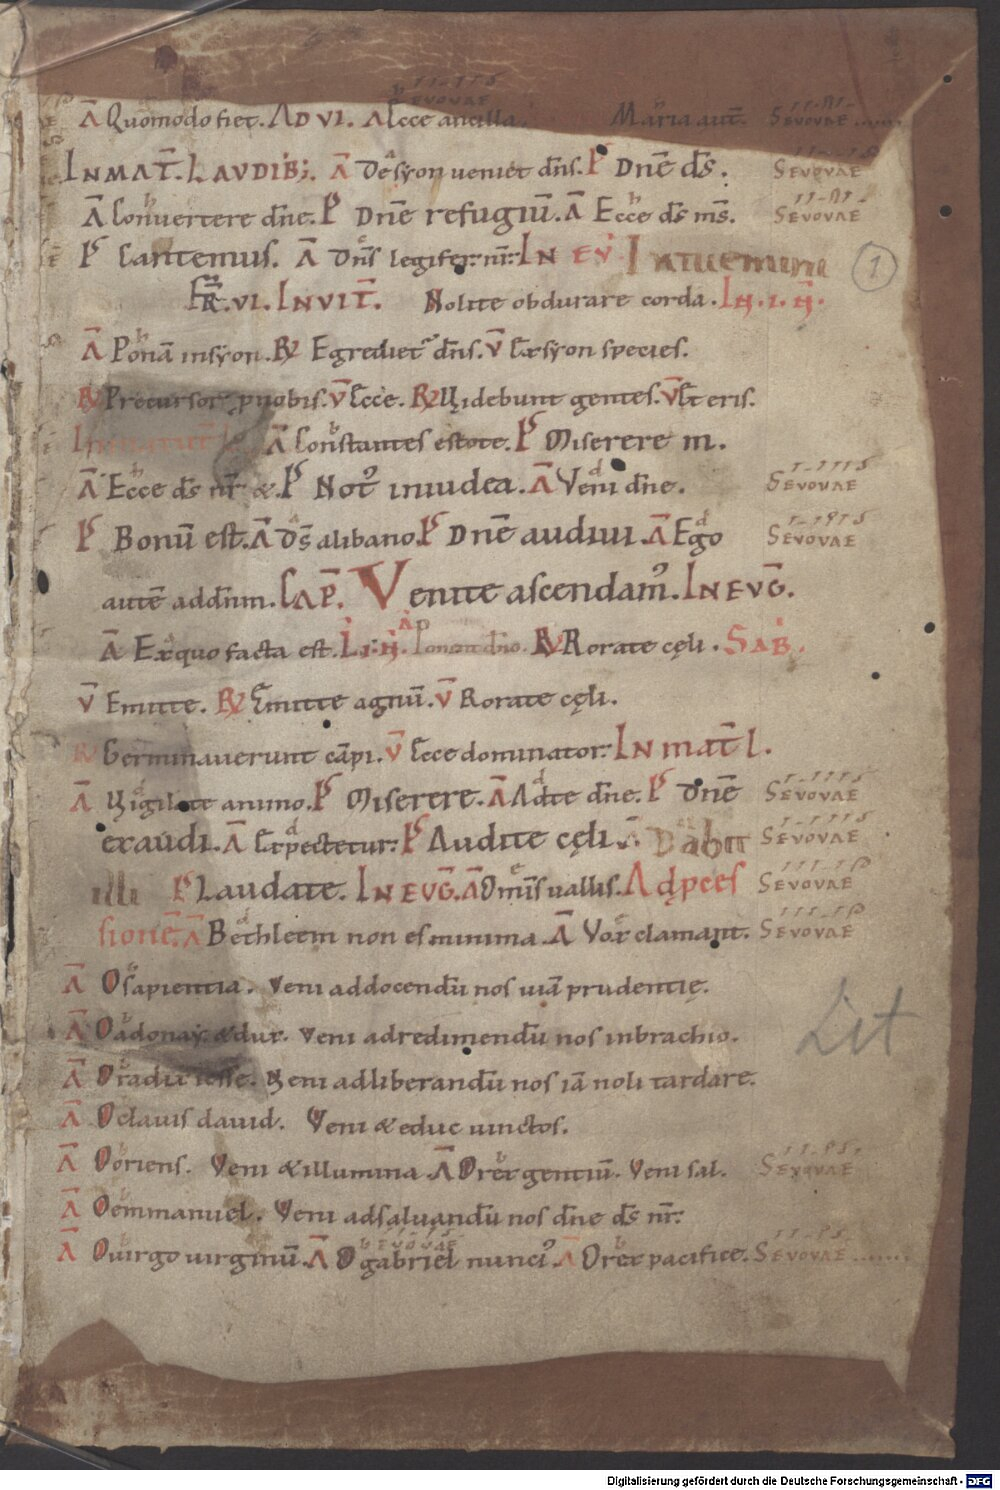 Ā Quom̄odo fiet. AD VI. Ā Ecce ancilla. Maria aut̄. SEVOVAE
IN MAT̄. LAVDIB;. Ā De syon veniet dn̄s. P̄ Dn̄e ds̄. SEVOVAE
Ā Convertere dn̄e. P̄ Dn̄e refugiū. Ā Ecce ds̄ ms̄. SEVOVAE
P̄ Cantemus. Ā Dn̄s legifer nr̄. IN EV̄
FR̄. VI. INVIT̄. Nolite obdurare corda. IN. I. N̄.
Ā Ponā in syon. R̄ Egrediet᷑ dn̄s. V̄ Ex syon species.
R̄ Precursor ꝓ nobis. V̄ Ecce. R̄ Videbunt gentes. V̄ Et eris.
Ā Constantes estote. P̄ Miserere m.
Ā Ecce ds̄ nr̄ &. P̄ Noť iniudea. Ā Veni dn̄e. SEVOVAE
P̄ Bonū est. Ā Ds̄ alibano. P̄ Dn̄e audiui. Ā Ego SEVOVAE
autē addn̄m. CAP̄. Venite ascendam᾿. IN EVḠ.
Ā Ex quo facta est. R̄ Rorate cęli. SAB̄.
V̄ Emitte. R̄ Emitte agnū. V̄ Rorate cęli.
R̄ Germinauerunt cāpi. V̄ Ecce dominator. IN mat̄ l.
Ā Vigilate animo. P̄ Miserere. Ā Adte dn̄e. P̄ Dn̄e SEVOVAE
exaudi. Ā Expectetur. P̄ Audite cęli. Ā Dabit SEVOVAE
illi P̄ Laudate. IN EVḠ. Ā Omīs uallis. Ad p̄ces SEVOVAE
sionē. Ā Bethleem non es minima. Ā Vox clamant. SEVOVAE
Ā O sapientia. Veni addocendū nos uiā prudentię.
Ā O adonay & dux. Veni adredimendū nos inbrachio.
Ā O radix iesse. Veni adliberandū nos iā noli tardare.
Ā O clauis dauid. Veni & educ uinctos.
Ā O oriens. Veni & illumina. Ā O rex gentiū. Veni sal. SEVOVAE
Ā O emmanuel. Veni adsaluandū nos dn̄e ds̄ nr̄.
Ā O uirgo uirginū. Ā O gabriel nunci᾿. Ā O rex pacifice. SEVOVAE
1
Lit
Digitalisierung gefördert durch die Deutsche Forschungsgemeinschaft - DFG